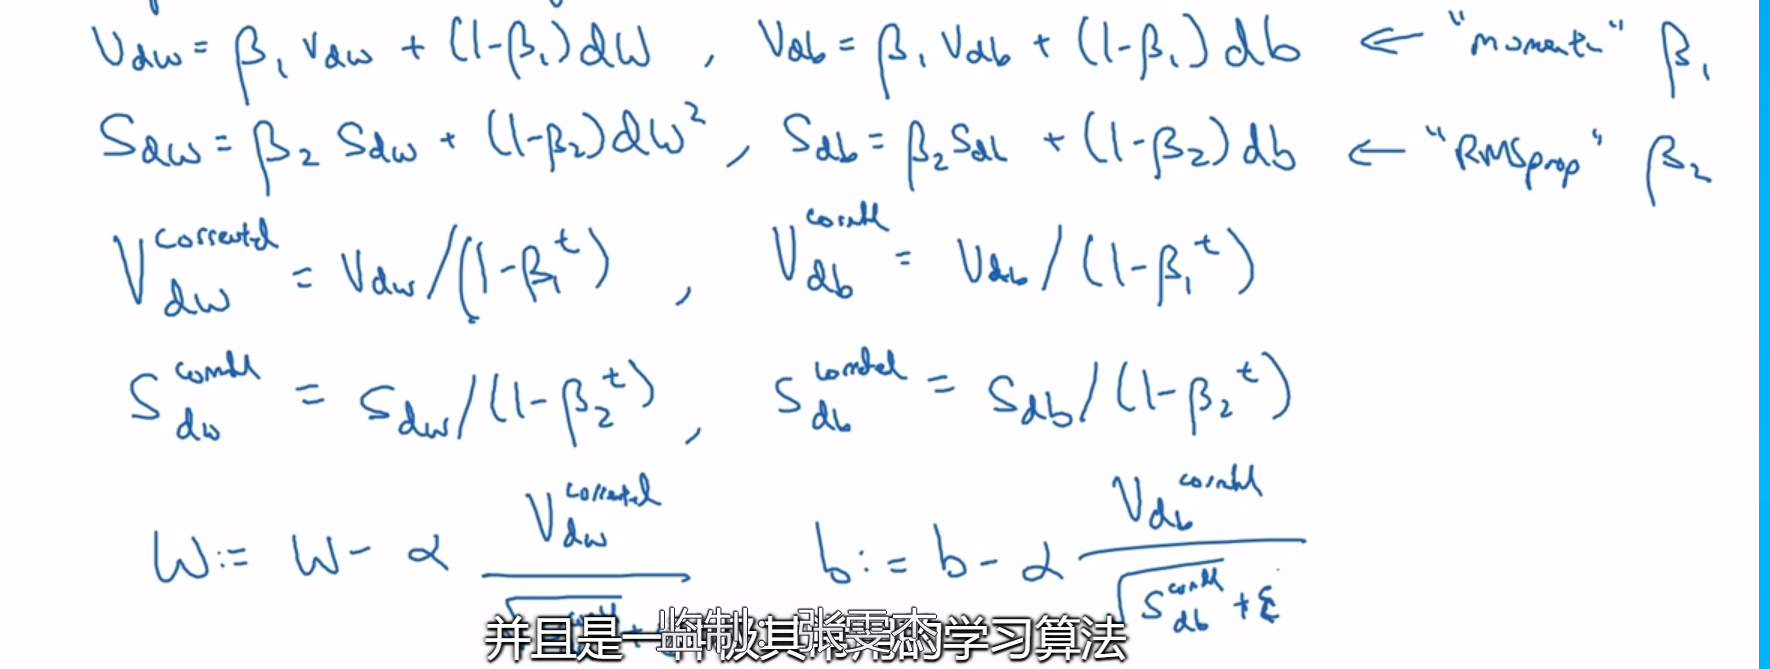 V_dw = β₁ V_dw + (1-β₁) dW , V_db = β₁ V_db + (1-β₁) db ← "moment" β₁
S_dw = β₂ S_dw + (1-β₂) dw² , S_db = β₂ S_db + (1-β₂) db ← "RMSprop" β₂
V_dw^corrected = V_dw / (1-β₁^t) , V_db^corrected = V_db / (1-β₁^t)
S_dw^corrected = S_dw / (1-β₂^t) , S_db^corrected = S_db / (1-β₂^t)
W := W - α V_dw^corrected / √ b := b - α V_db^corrected / √S_db^corrected + ε
并且是一种极其常用的学习算法
监制：张雯杰